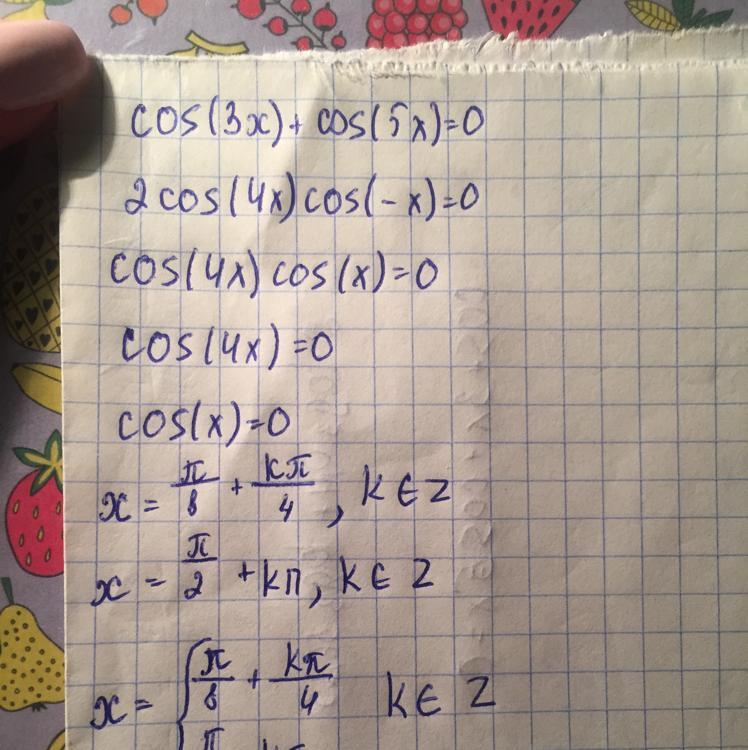 cos(3x)+cos(5x)=0
2cos(4x)cos(-x)=0
cos(4x)cos(x)=0
cos(4x)=0
cos(x)=0
x = π/8 + kπ/4, k∈Z
x = π/2 + kπ, k∈Z
x = { π/8 + kπ/4 k∈Z